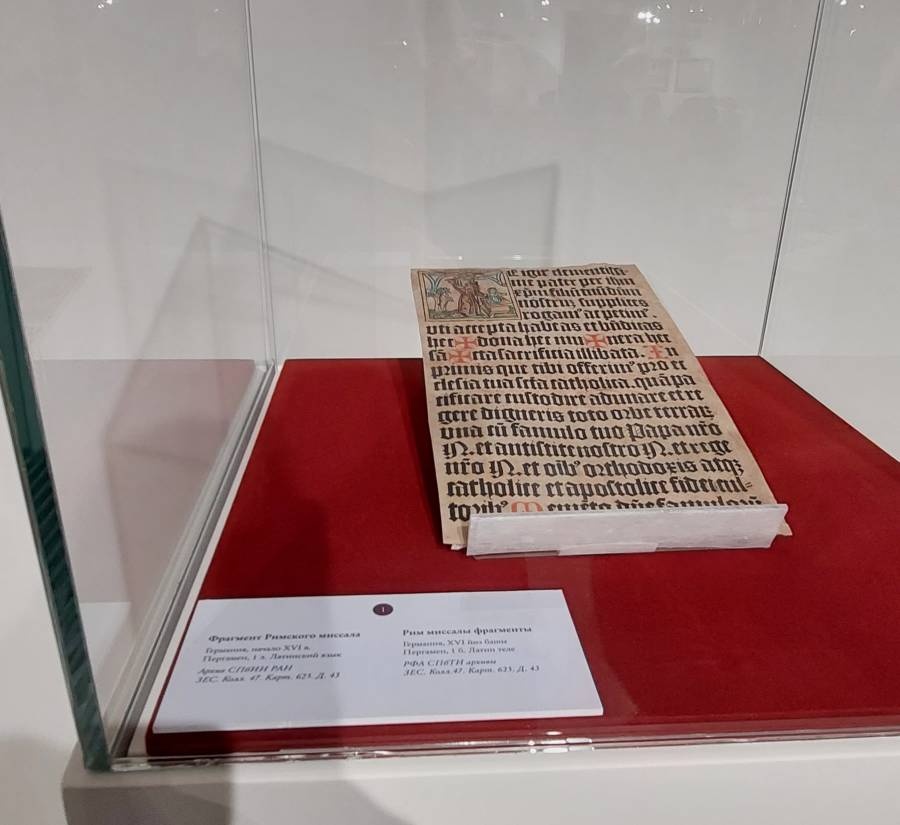 E igit̄ clementissi-
me pater per ihm̄
xp̄m filiū tuū dn̄m
nostrū supplices
rogamꝰ ac petimꝰ.
vti accepta habeas et bn̄dicas
hec ✠ dona hec mu ✠ nera hec
sā ✠ cta sacrificia illibata. ✠ In
primis que tibi offerimꝰ pro ec
clesia tua sc̄ta catholica. quā pa
cificare custodire adunare et re
gere digneris toto orbe terraꝝ
vna cū famulo tuo Papa nr̄o
N. et antistite nostro N. et rege
nr̄o N. et oīb᾿ orthodoxis atqꝫ
catholice et apostolice fidei cul-
torib᾿ Memēto dn̄e famularū
1
Фрагмент Римского миссала
Германия, начало XVI в.
Пергамен, 1 л. Латинский язык
Архив СПбИИ РАН
ЗЕС. Колл. 47. Карт. 625. Д. 43
Рим миссалы фрагменты
Германия, XVI йөз башы
Пергамен, 1 б. Латин теле
РФА СПбТИ архивы
ЗЕС. Колл.47. Карт. 625. Д. 43